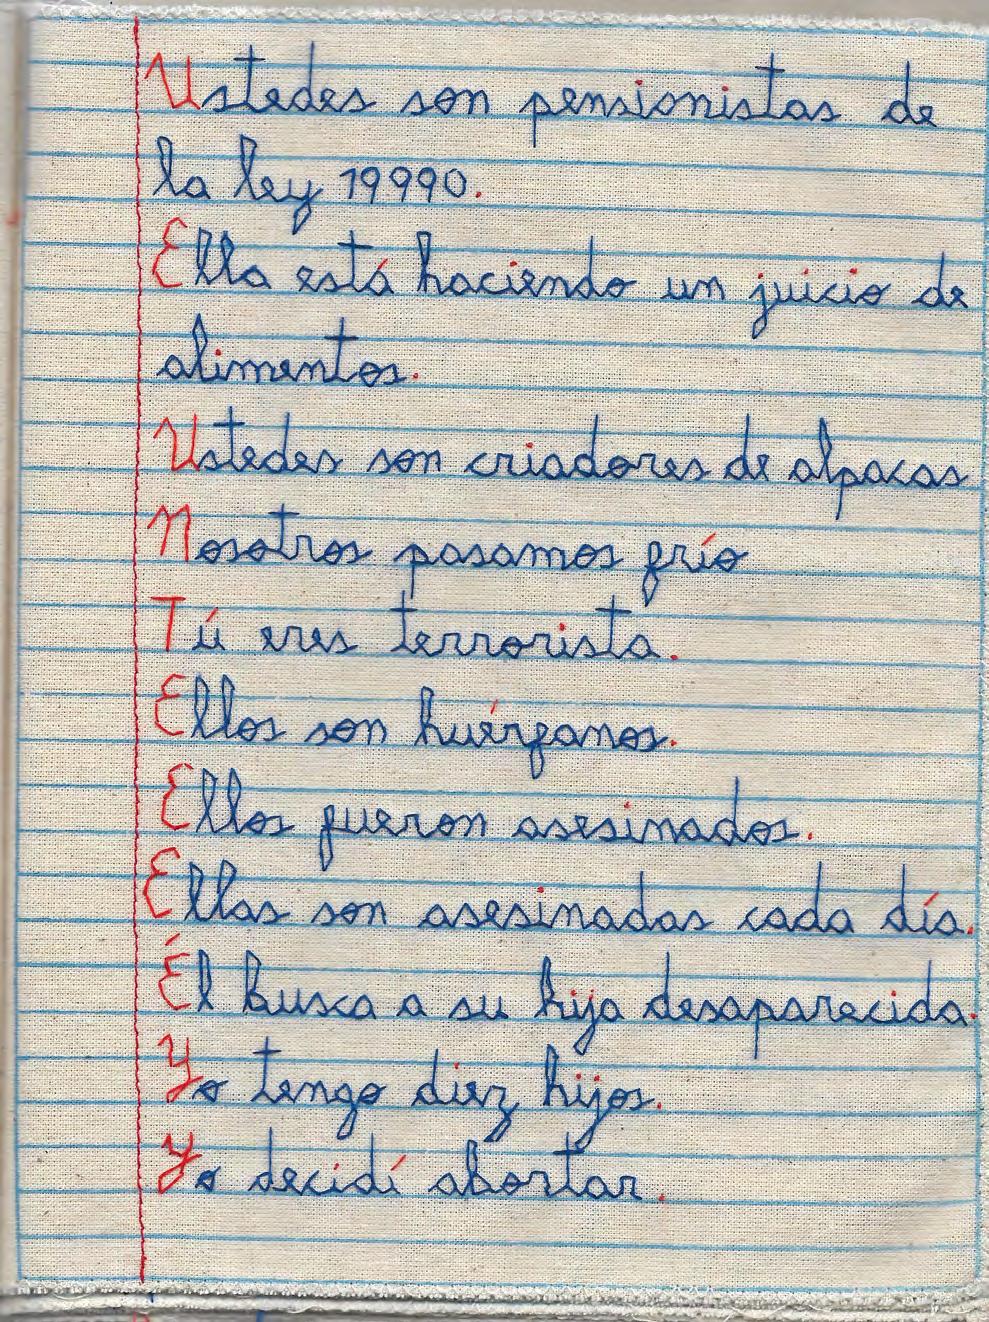 Ustedes son pensionistas de
la ley 19990.
Ella está haciendo un juicio de
alimentos.
Ustedes son criadores de alpacas
Nosotros pasamos frío
Tú eres terrorista.
Ellos son huérfanos.
Ellos fueron asesinados.
Ellas son asesinadas cada día.
Él busca a su hija desaparecida.
Yo tengo diez hijos.
Yo decidí abortar.